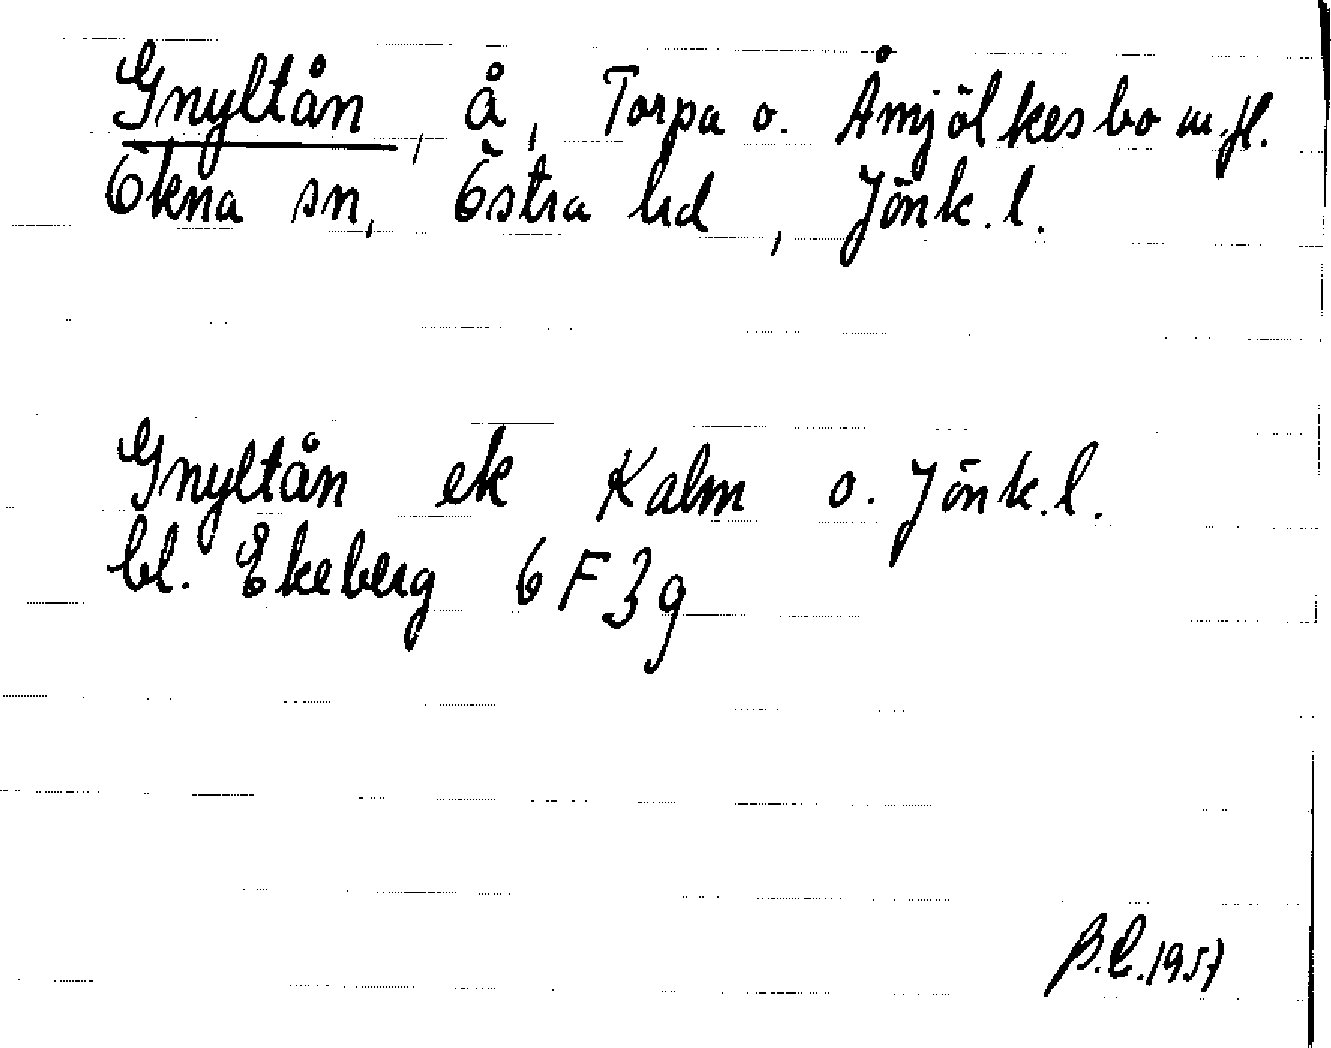 Gnyltån, å, Torpa o. Åmjölkesbo m.fl.
Ökna sn, Östra hd, Jönk.l.
Gnyltån ek Kalm o. Jönk.l.
bl. Ekeberg 6F3g
B.E.1957